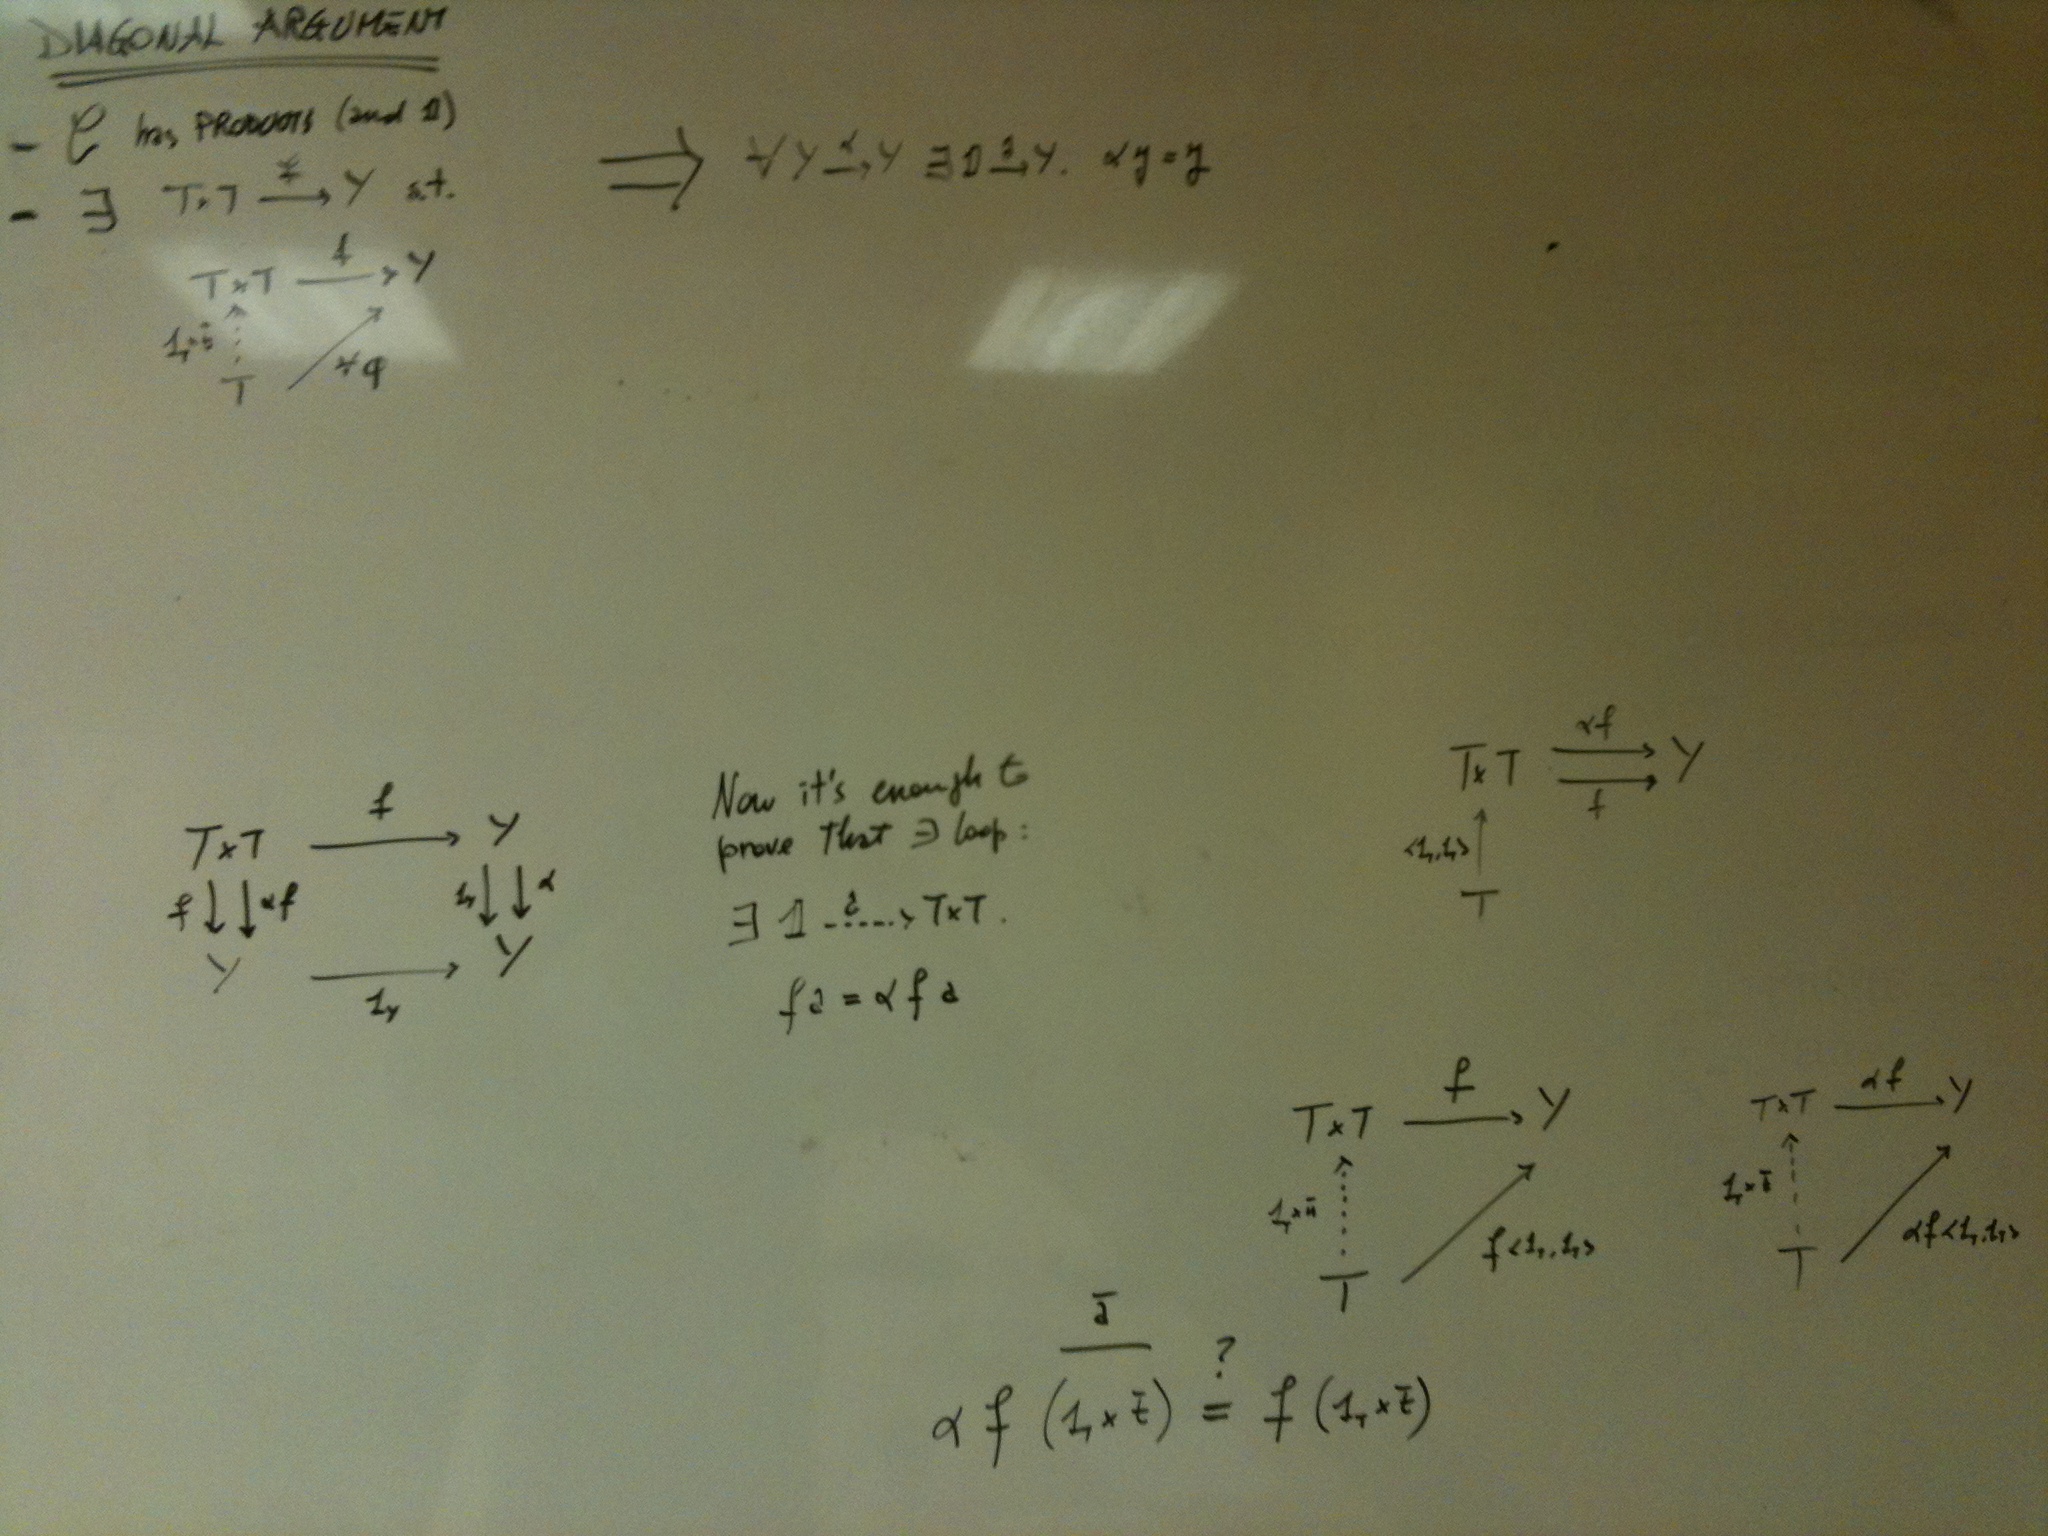 DIAGONAL ARGUMENT
- C has PRODUCTS (and 1)
- ∃ T×T f→ Y s.t.
⟹ ∀ Y α→ Y ∃ 1 y→ Y. αy = y
T×T f→ Y
1_T×t̄ ∀φ
T
T×T f→ Y
f αf 1_Y α
Y 1_Y→ Y
Now it's enough to
prove that ∃ loop:
∃ 1 a⇢ T×T.
fa = αfa
T×T αf f Y
<1_T,1_T>
T
T×T f→ Y
1_T× f<1_T,1_T>
T
T×T αf→ Y
1_T×t̄ αf<1_T,1_T>
T
ā
αf (1_T×t̄) ?= f (1_T×t̄)